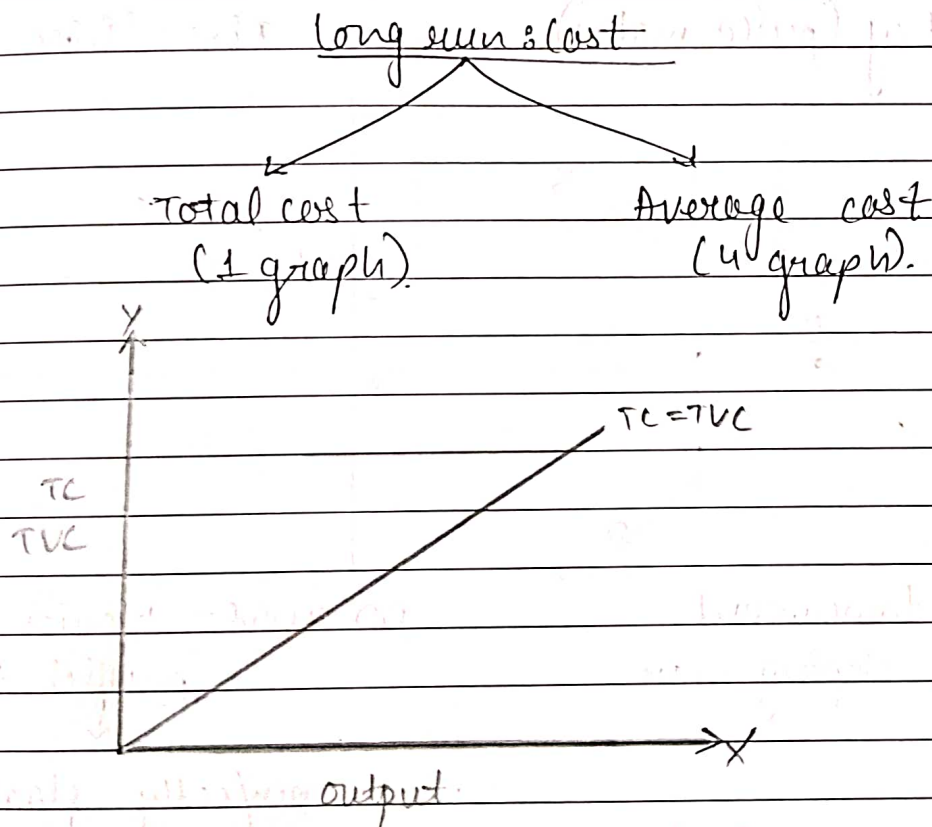 Long run : Cost
Total cost
Average cost
(1 graph).
(4 graph).
Y
TC = TVC
TC
TVC
X
output.